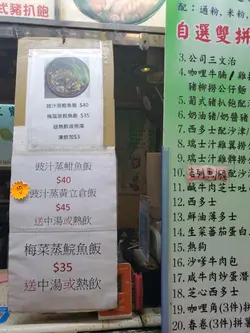 式豬扒飽
豉汁蒸鯇魚飯 $40
梅菜蒸鯇魚飯 $35
送熱飲或例湯
凍飲加$3
豉汁蒸鯇魚飯
$40
豉汁蒸黃立倉飯
$45
送中湯或熱飲
梅菜蒸鯇魚飯
$35
送中湯或熱飲
配：通粉，米粉，
自選雙拼
3. 公司三文治
4. 咖哩牛腩/
豬柳撈公仔麵
5. 葡式豬扒飽配
6. 奶油豬/奶醬豬
7. 西多士配沙
8. 瑞士汁雞翼
9. 瑞士汁雞髀
10.
11. 鹹牛肉芝士
12. 西多士
13. 鮮油薄多士
14. 生菜蕃茄蛋
15. 熱狗
16. 沙嗲牛肉包
17. 咸牛肉炒蛋
18. 芝心西多士
19. 咖哩角(3件)
20. 春卷(3件)拼